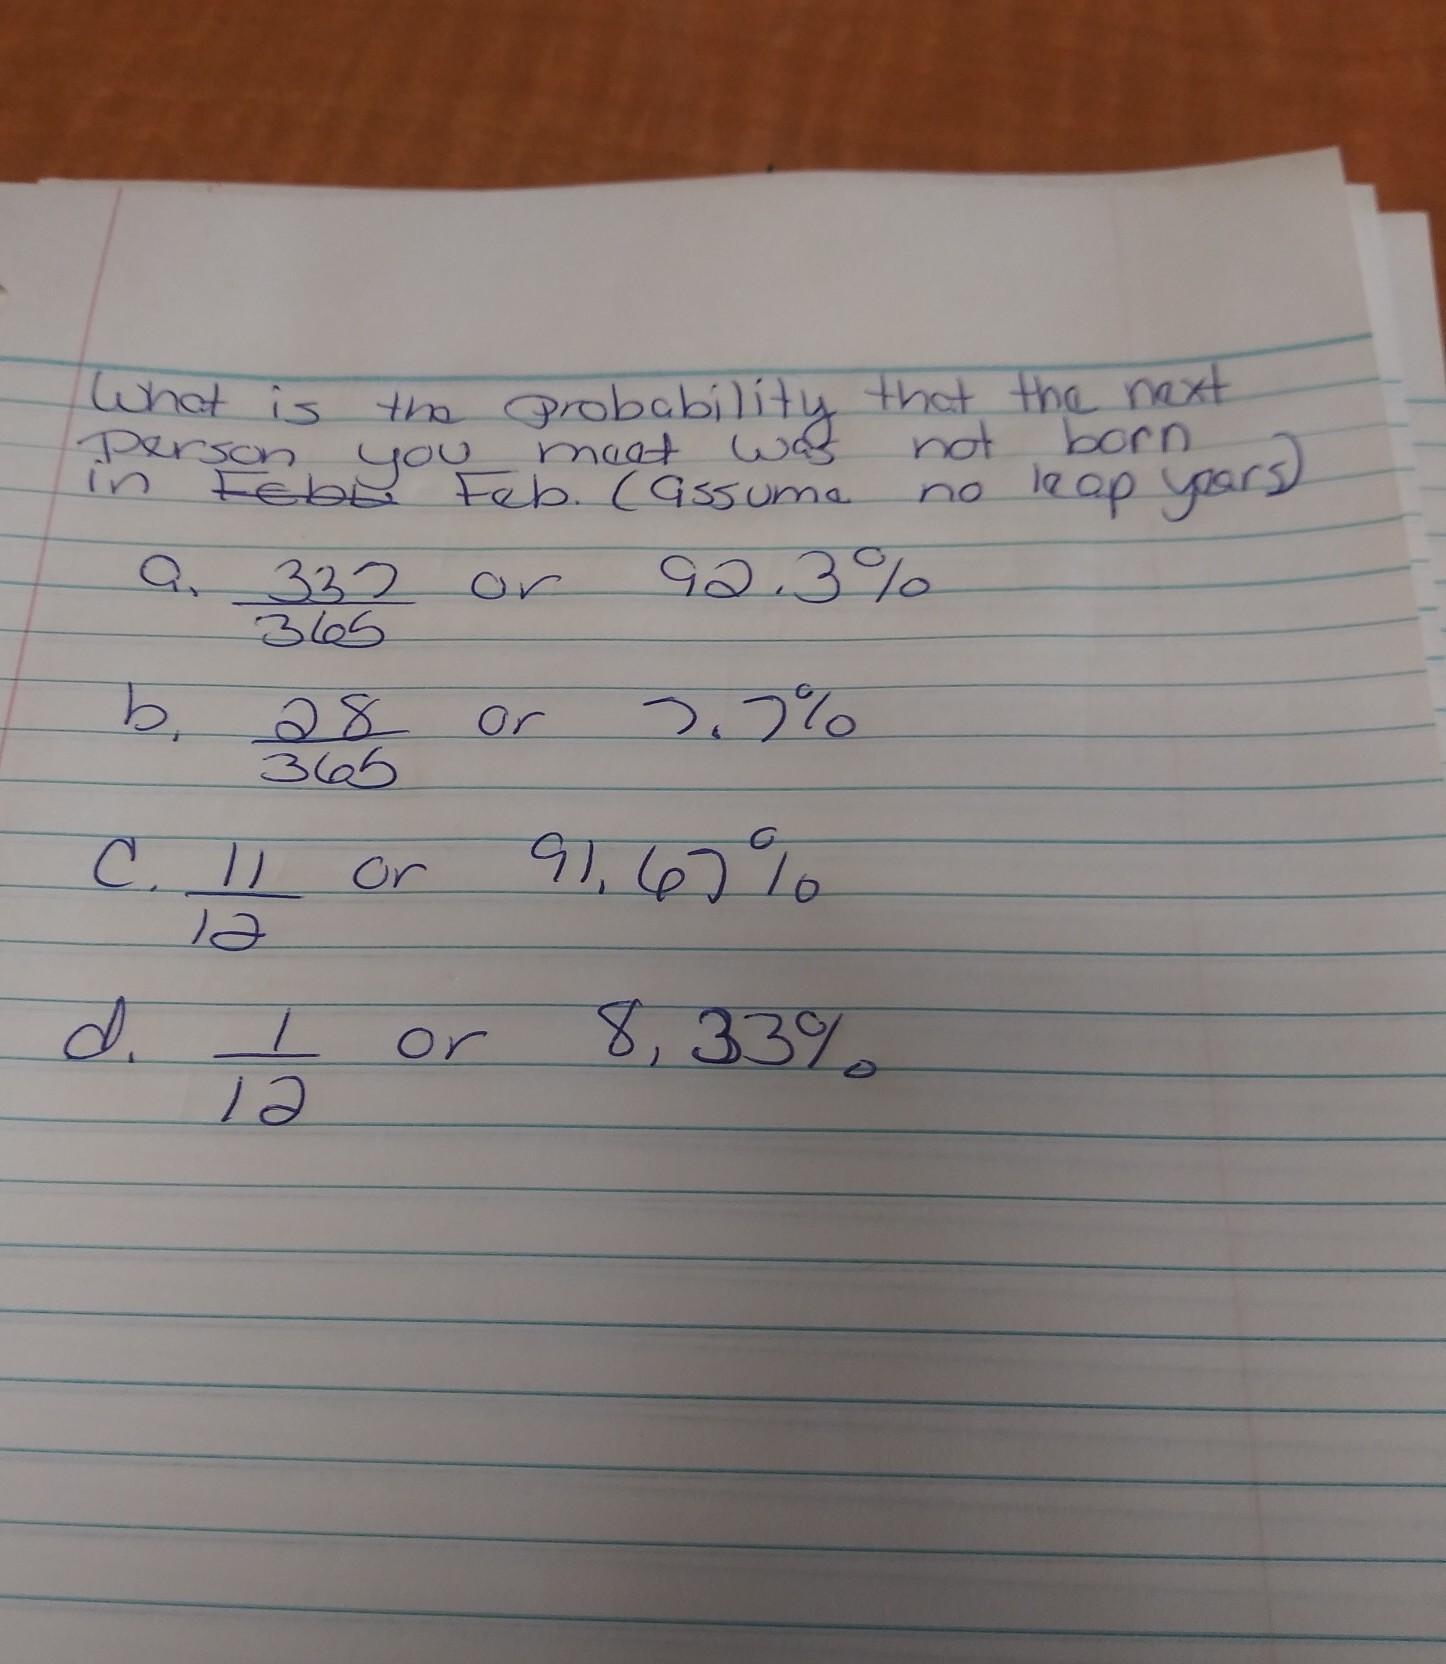 What is the probability that the next
person you meet was not born
in Febu Feb. (assume no leap years)
a. 337 or 92.3%
365
b. 28 or 7.7%
365
C. 11 or 91.67%
12
d. 1 or 8.33%
12